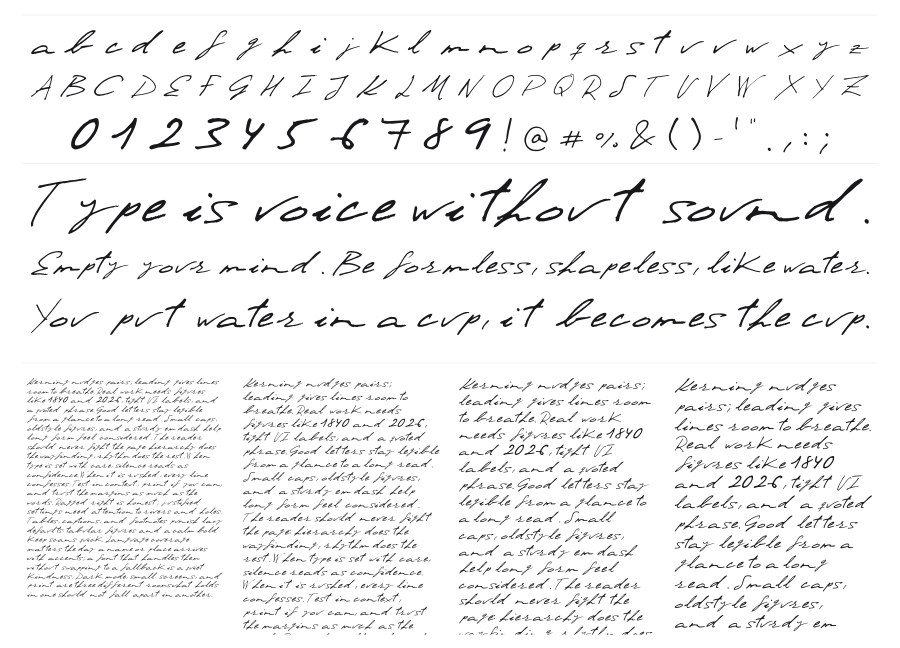 a b c d e f g h i j k l m n o p q r s t u v w x y z
A B C D E F G H I J K L M N O P Q R S T U V W X Y Z
0 1 2 3 4 5 6 7 8 9 ! @ # % & ( ) - ' " . , : ;
Type is voice without sound.
Empty your mind. Be formless, shapeless, like water.
You put water in a cup, it becomes the cup.
Kerning nudges pairs; leading gives lines
room to breathe. Real work needs figures
like 1840 and 2026, tight UI labels, and
a quoted phrase. Good letters stay legible
from a glance to a long read. Small caps,
oldstyle figures, and a sturdy em dash help
long form feel considered. The reader
should never fight the page hierarchy does
the wayfinding, rhythm does the rest. When
type is set with care, silence reads as
confidence. When it is rushed, every line
confesses. Test in context, print if you can,
and trust the margins as much as the
words. Ragged right is honest, justified
settings need attention to rivers and holes.
Tables, captions, and footnotes punish lazy
defaults: tabular figures and a calm bold
keep scans quick. Language coverage
matters the day a name or place arrives
with accents; a font that handles them
without swapping to fallback is a quiet
kindness. Dark mode, small screens, and
print are three different rooms what holds
in one should not fall apart in another.
Kerning nudges pairs;
leading gives lines room to
breathe. Real work needs
figures like 1840 and 2026,
tight UI labels, and a quoted
phrase. Good letters stay legible
from a glance to a long read.
Small caps, oldstyle figures,
and a sturdy em dash help
long form feel considered.
The reader should never fight
the page hierarchy does the
wayfinding, rhythm does the
rest. When type is set with care,
silence reads as confidence.
When it is rushed, every line
confesses. Test in context,
print if you can, and trust
the margins as much as the
Kerning nudges pairs;
leading gives lines room
to breathe. Real work
needs figures like 1840
and 2026, tight UI
labels, and a quoted
phrase. Good letters stay
legible from a glance to
a long read. Small
caps, oldstyle figures,
and a sturdy em dash
help long form feel
considered. The reader
should never fight the
page hierarchy does the
wayfinding, rhythm does
Kerning nudges
pairs; leading gives
lines room to breathe.
Real work needs
figures like 1840
and 2026, tight UI
labels, and a quoted
phrase. Good letters
stay legible from a
glance to a long
read. Small caps,
oldstyle figures,
and a sturdy em